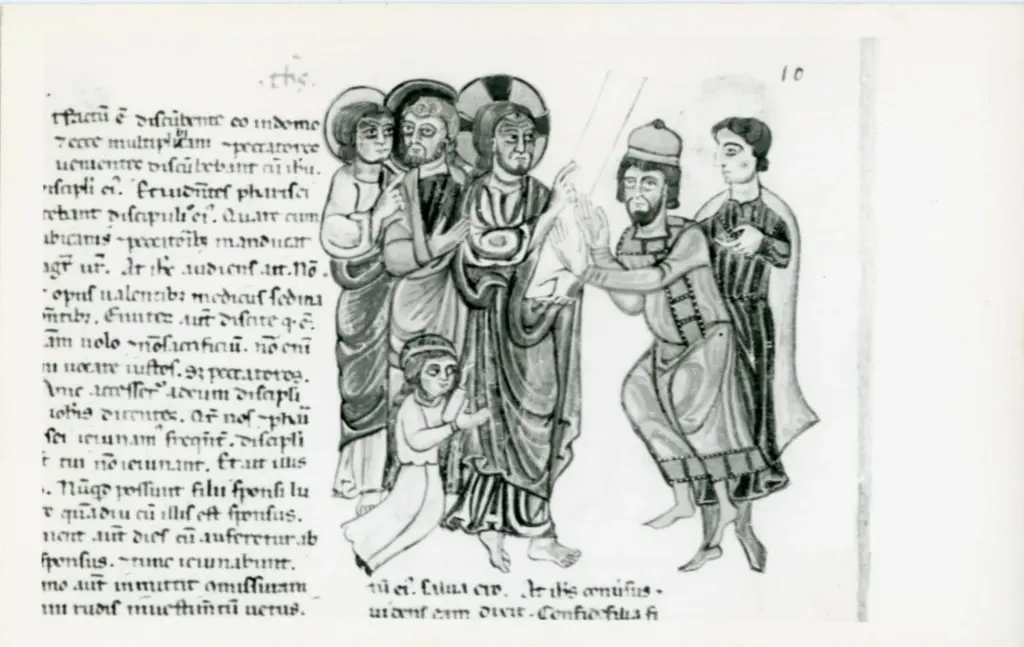 ih̄s.
10
t factū ē discūbente eo indomo
⁊ ecce ⁊ peccatores
uenientes discūbebant cū ihū.
iscipli ei'. Et uidētes pharisei
cebant discipulis ei'. Quare cum
ublicanis ⁊ peccatorib; manducat
agr̄ ur̄. At ih̄c audiens ait. Nō
opus ualentib; medicus sed ma
entib;. Euntes aut̄ discite q. ē.
am uolo ⁊ nō sacrificiū. nō eni
ni uocare iustos. Sȝ peccatores.
unc accesser' ad eum discipli
iohis dicentes. Qr̄ nos ⁊ pha
sei ieiunam' freqn̄t. discipli
tui nō ieiunant. Et ait illis
. Nūqd possunt filii sponsi lu
e quādiu cū illis est sponsus.
nient aut̄ dies cū auferetur ab
sponsus. ⁊ tunc ieiunabunt.
mo aut̄ inmittit cōmissuram
ni rudis in uestimtū uetus.
ei'. Salua ero. At ih̄s conuisus
uidens eam dixit. Confide filia fi